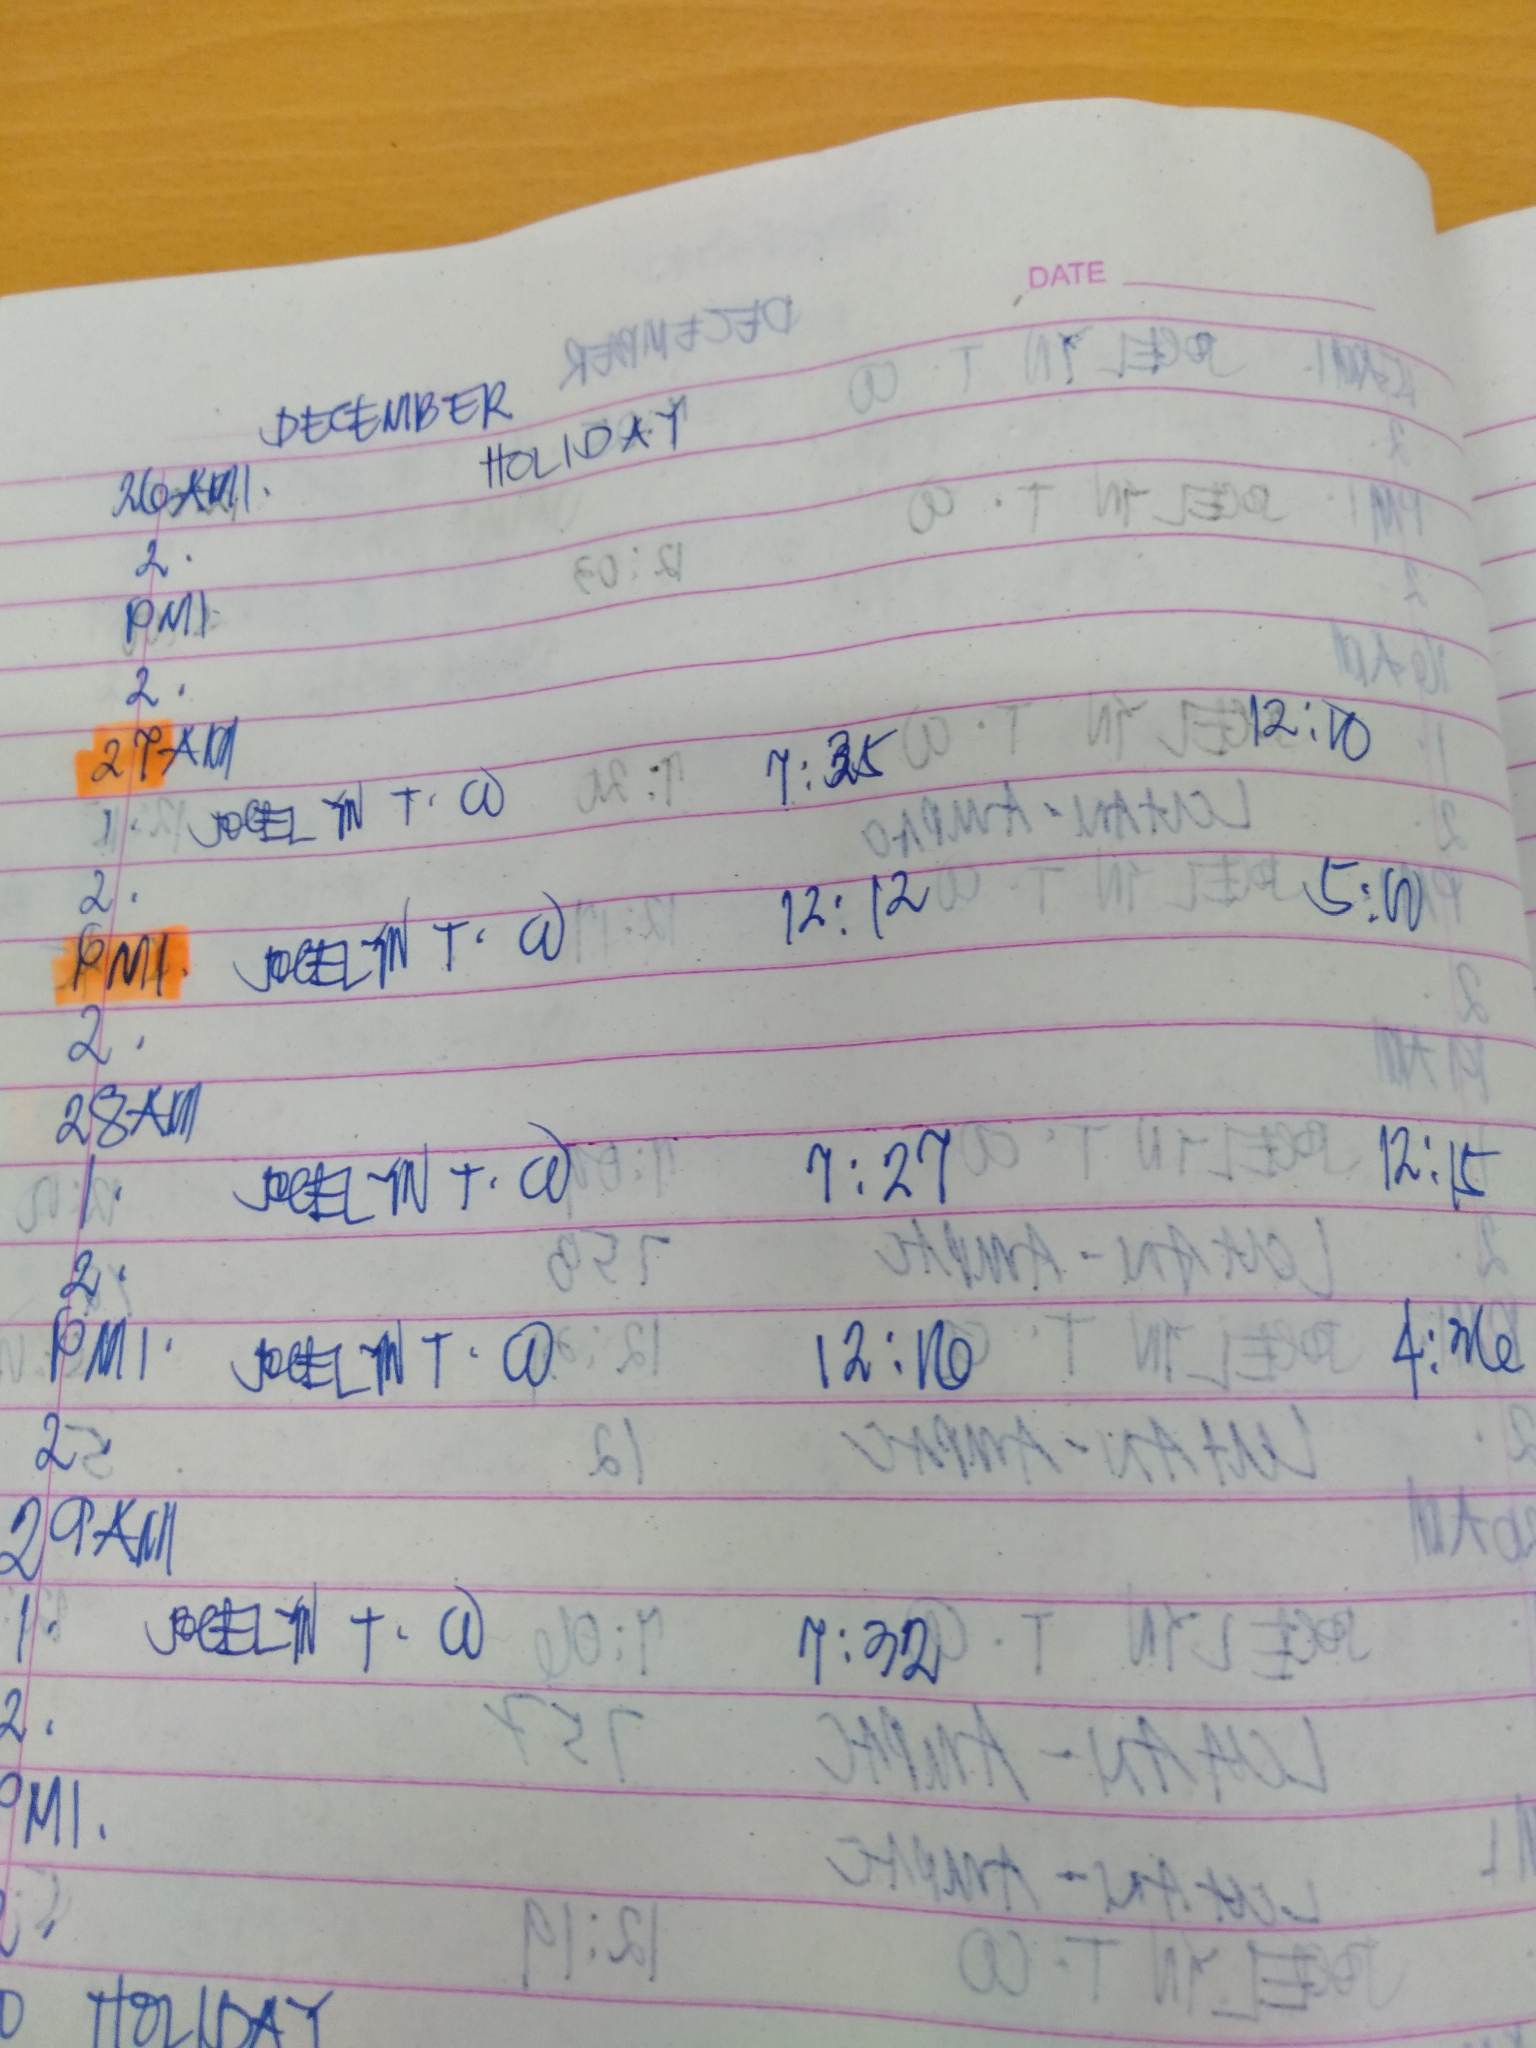 DATE
DECEMBER
26AM1. HOLIDAY
2.
PM1
2.
27AM
1. JOCELYN T. CO 7:35 12:10
2.
PM1. JOCELYN T. CO 12:12 5:00
2.
28AM
1. JOCELYN T. CO 7:27 12:15
2.
PM1. JOCELYN T. CO 12:16
2
29AM
1. JOCELYN T. CO 7:32
2.
PM1.
HOLIDAY